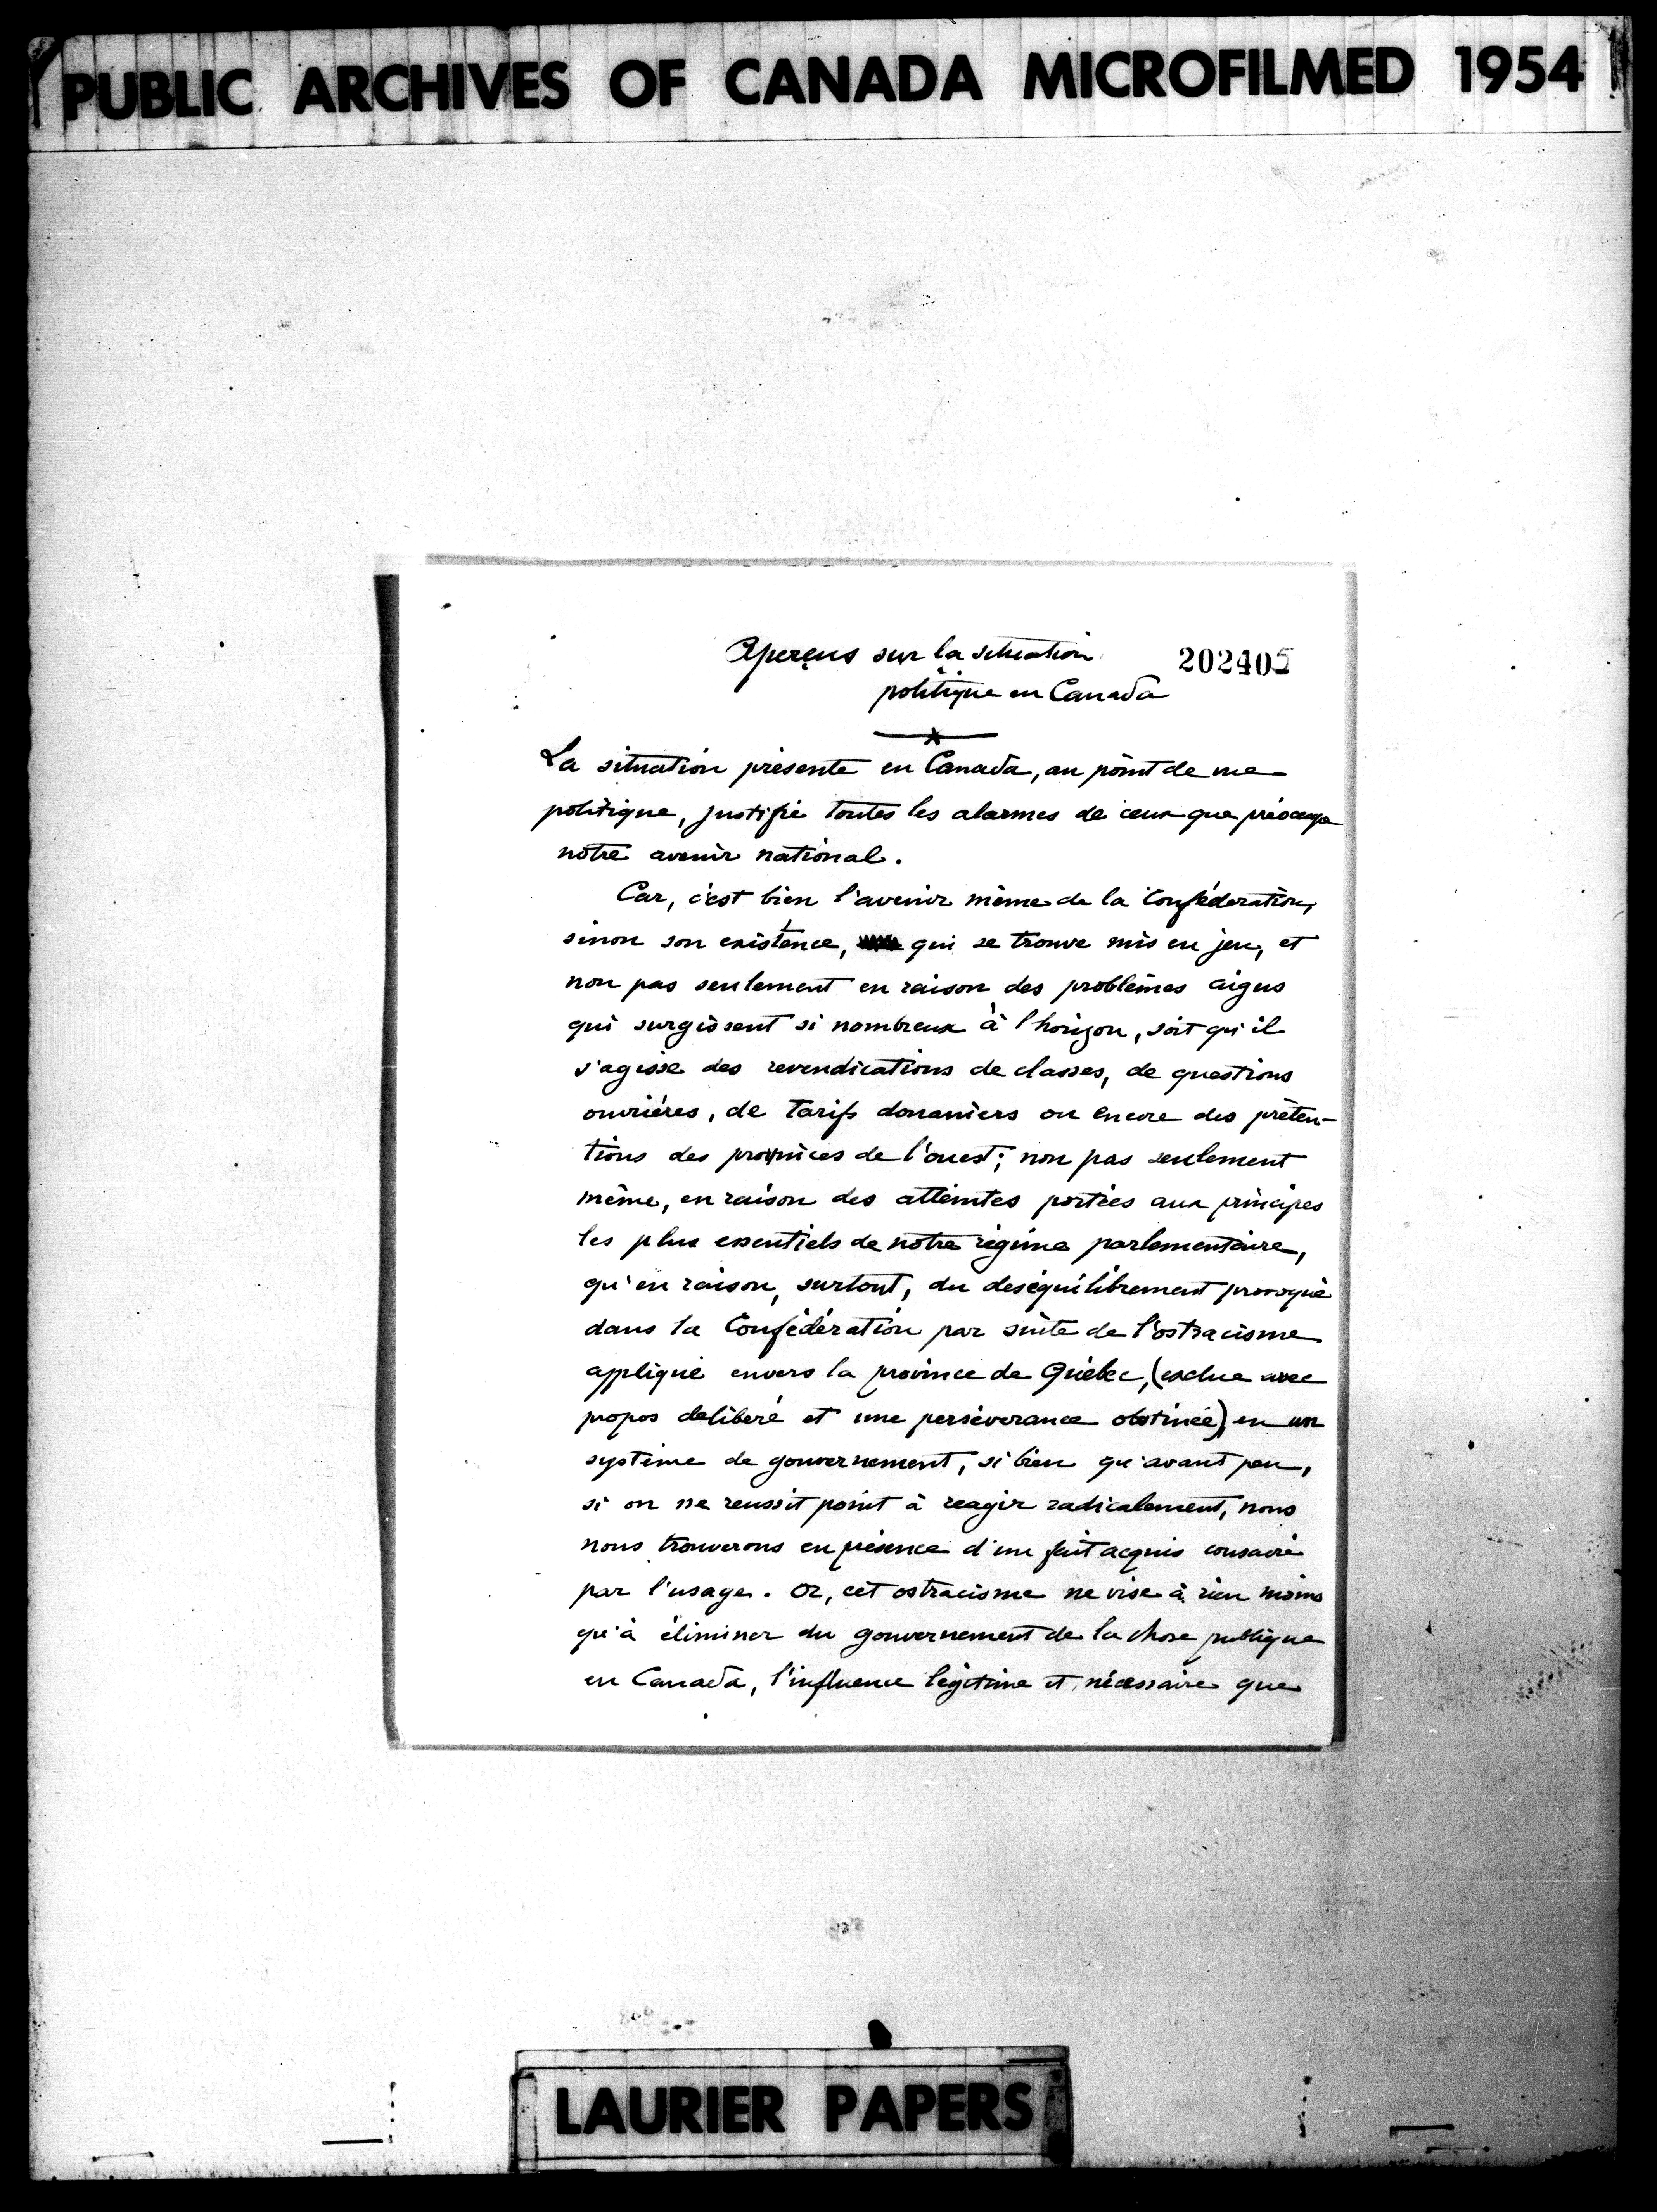 PUBLIC ARCHIVES OF CANADA MICROFILMED 1954
Aperçus sur la situation
politique en Canada
La situation présente en Canada, au point de vue
politique, justifie toutes les alarmes de ceux que préoccupe
notre avenir national.
Car, c'est bien l'avenir même de la Confédération,
sinon son existence, qui se trouve mis en jeu, et
non pas seulement en raison des problèmes aigus
qui surgissent si nombreux à l'horizon, soit qu'il
s'agisse des revendications de classes, de questions
ouvrières, de tarifs douaniers ou encore des préten-
tions des provinces de l'ouest; non pas seulement
même, en raison des atteintes portées aux principes
les plus essentiels de notre régime parlementaire,
qu'en raison, surtout, du deséquilibrement provoqué
dans la Confédération par suite de l'ostracisme
appliqué envers la province de Québec, (exclue avec
propos deliberé et une perséverance obstinée), en un
système de gouvernement, si bien qu'avant peu,
si on ne reussit point à reagir radicalement, nous
nous trouverons en présence d'un fait acquis consacré
par l'usage. Or, cet ostracisme ne vise à rien moins
qu'à éliminer du gouvernement de la chose publique
en Canada, l'influence légitime et nécessaire que
LAURIER PAPERS